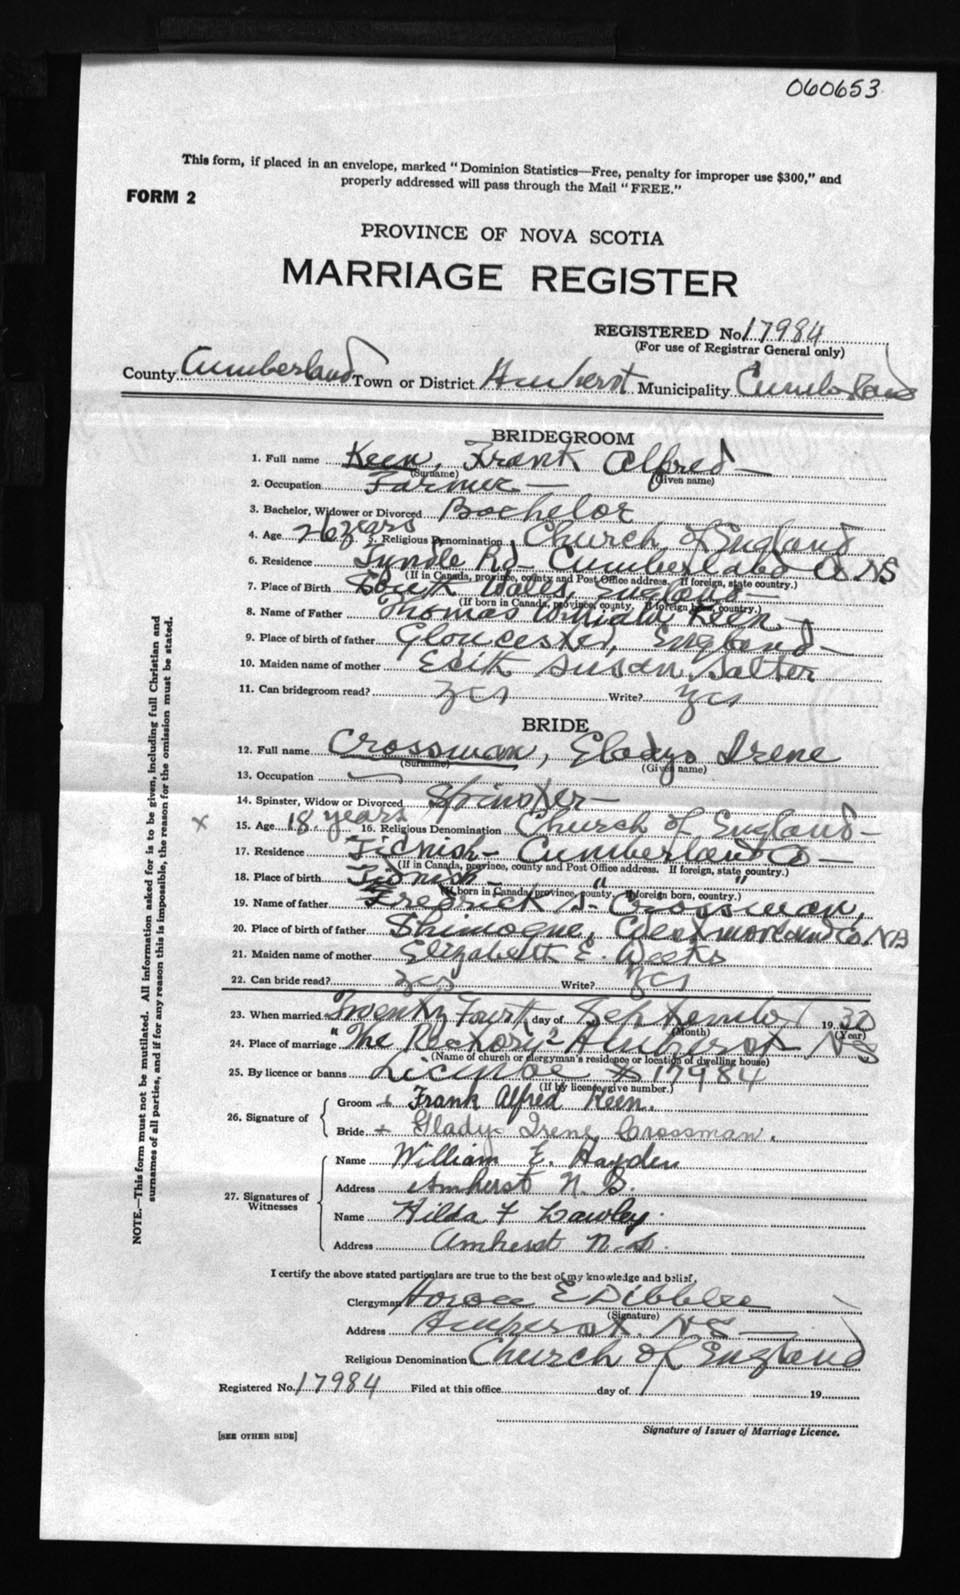 060653
This form, if placed in an envelope, marked "Dominion Statistics—Free, penalty for improper use $300," and
properly addressed will pass through the Mail "FREE."
FORM 2
PROVINCE OF NOVA SCOTIA
MARRIAGE REGISTER
REGISTERED No. 17984
(For use of Registrar General only)
County Cumberland Town or District Amherst Municipality Cumberland
BRIDEGROOM
1. Full name Keen, Frank Alfred
(Surname) (Given name)
2. Occupation Farmer
3. Bachelor, Widower or Divorced Bachelor
4. Age 26 years 5. Religious Denomination Church of England
6. Residence Tyndle Rd - Cumberland Co NS
(If in Canada, province, county and Post Office address. If foreign, state country.)
7. Place of Birth South Wales, England
(If born in Canada, province, county. If foreign born, country.)
8. Name of Father Thomas William Keen
9. Place of birth of father Gloucester, England
10. Maiden name of mother Edith Susan Salter
11. Can bridegroom read? yes Write? yes
BRIDE
12. Full name Crossman, Gladys Irene
(Surname) (Given name)
13. Occupation —
14. Spinster, Widow or Divorced Spinster
x 15. Age 18 years 16. Religious Denomination Church of England
17. Residence Tidnish - Cumberland Co
(If in Canada, province, county and Post Office address. If foreign, state country.)
18. Place of birth Tidnish - " "
(If born in Canada, province, county. If foreign born, country.)
19. Name of father Fredrick S. Crossman,
20. Place of birth of father Shimogue, Westmorland Co. NB
21. Maiden name of mother Elizabeth E. Weeks
22. Can bride read? yes Write? yes
23. When married Twenty Fourth day of September 1930
(Month) (Year)
24. Place of marriage "The Rectory" Amherst NS
(Name of church or clergyman's residence or location of dwelling house)
25. By licence or banns License # 17984
(If by license, give number.)
26. Signature of
Groom + Frank Alfred Keen.
Bride + Gladys Irene Crossman.
27. Signatures of Witnesses
Name William E. Hayden
Address Amherst N. S.
Name Hilda F Lawley
Address Amherst N.S.
I certify the above stated particulars are true to the best of my knowledge and belief,
Clergyman Horace E Dibblee
(Signature)
Address Amherst. NS
Religious Denomination Church of England
Registered No. 17984 Filed at this office day of 19
Signature of Issuer of Marriage Licence.
[SEE OTHER SIDE]
NOTE.—This form must not be mutilated. All information asked for is to be given, including full Christian and
surnames of all parties, and if for any reason this is impossible, the reason for the omission must be stated.